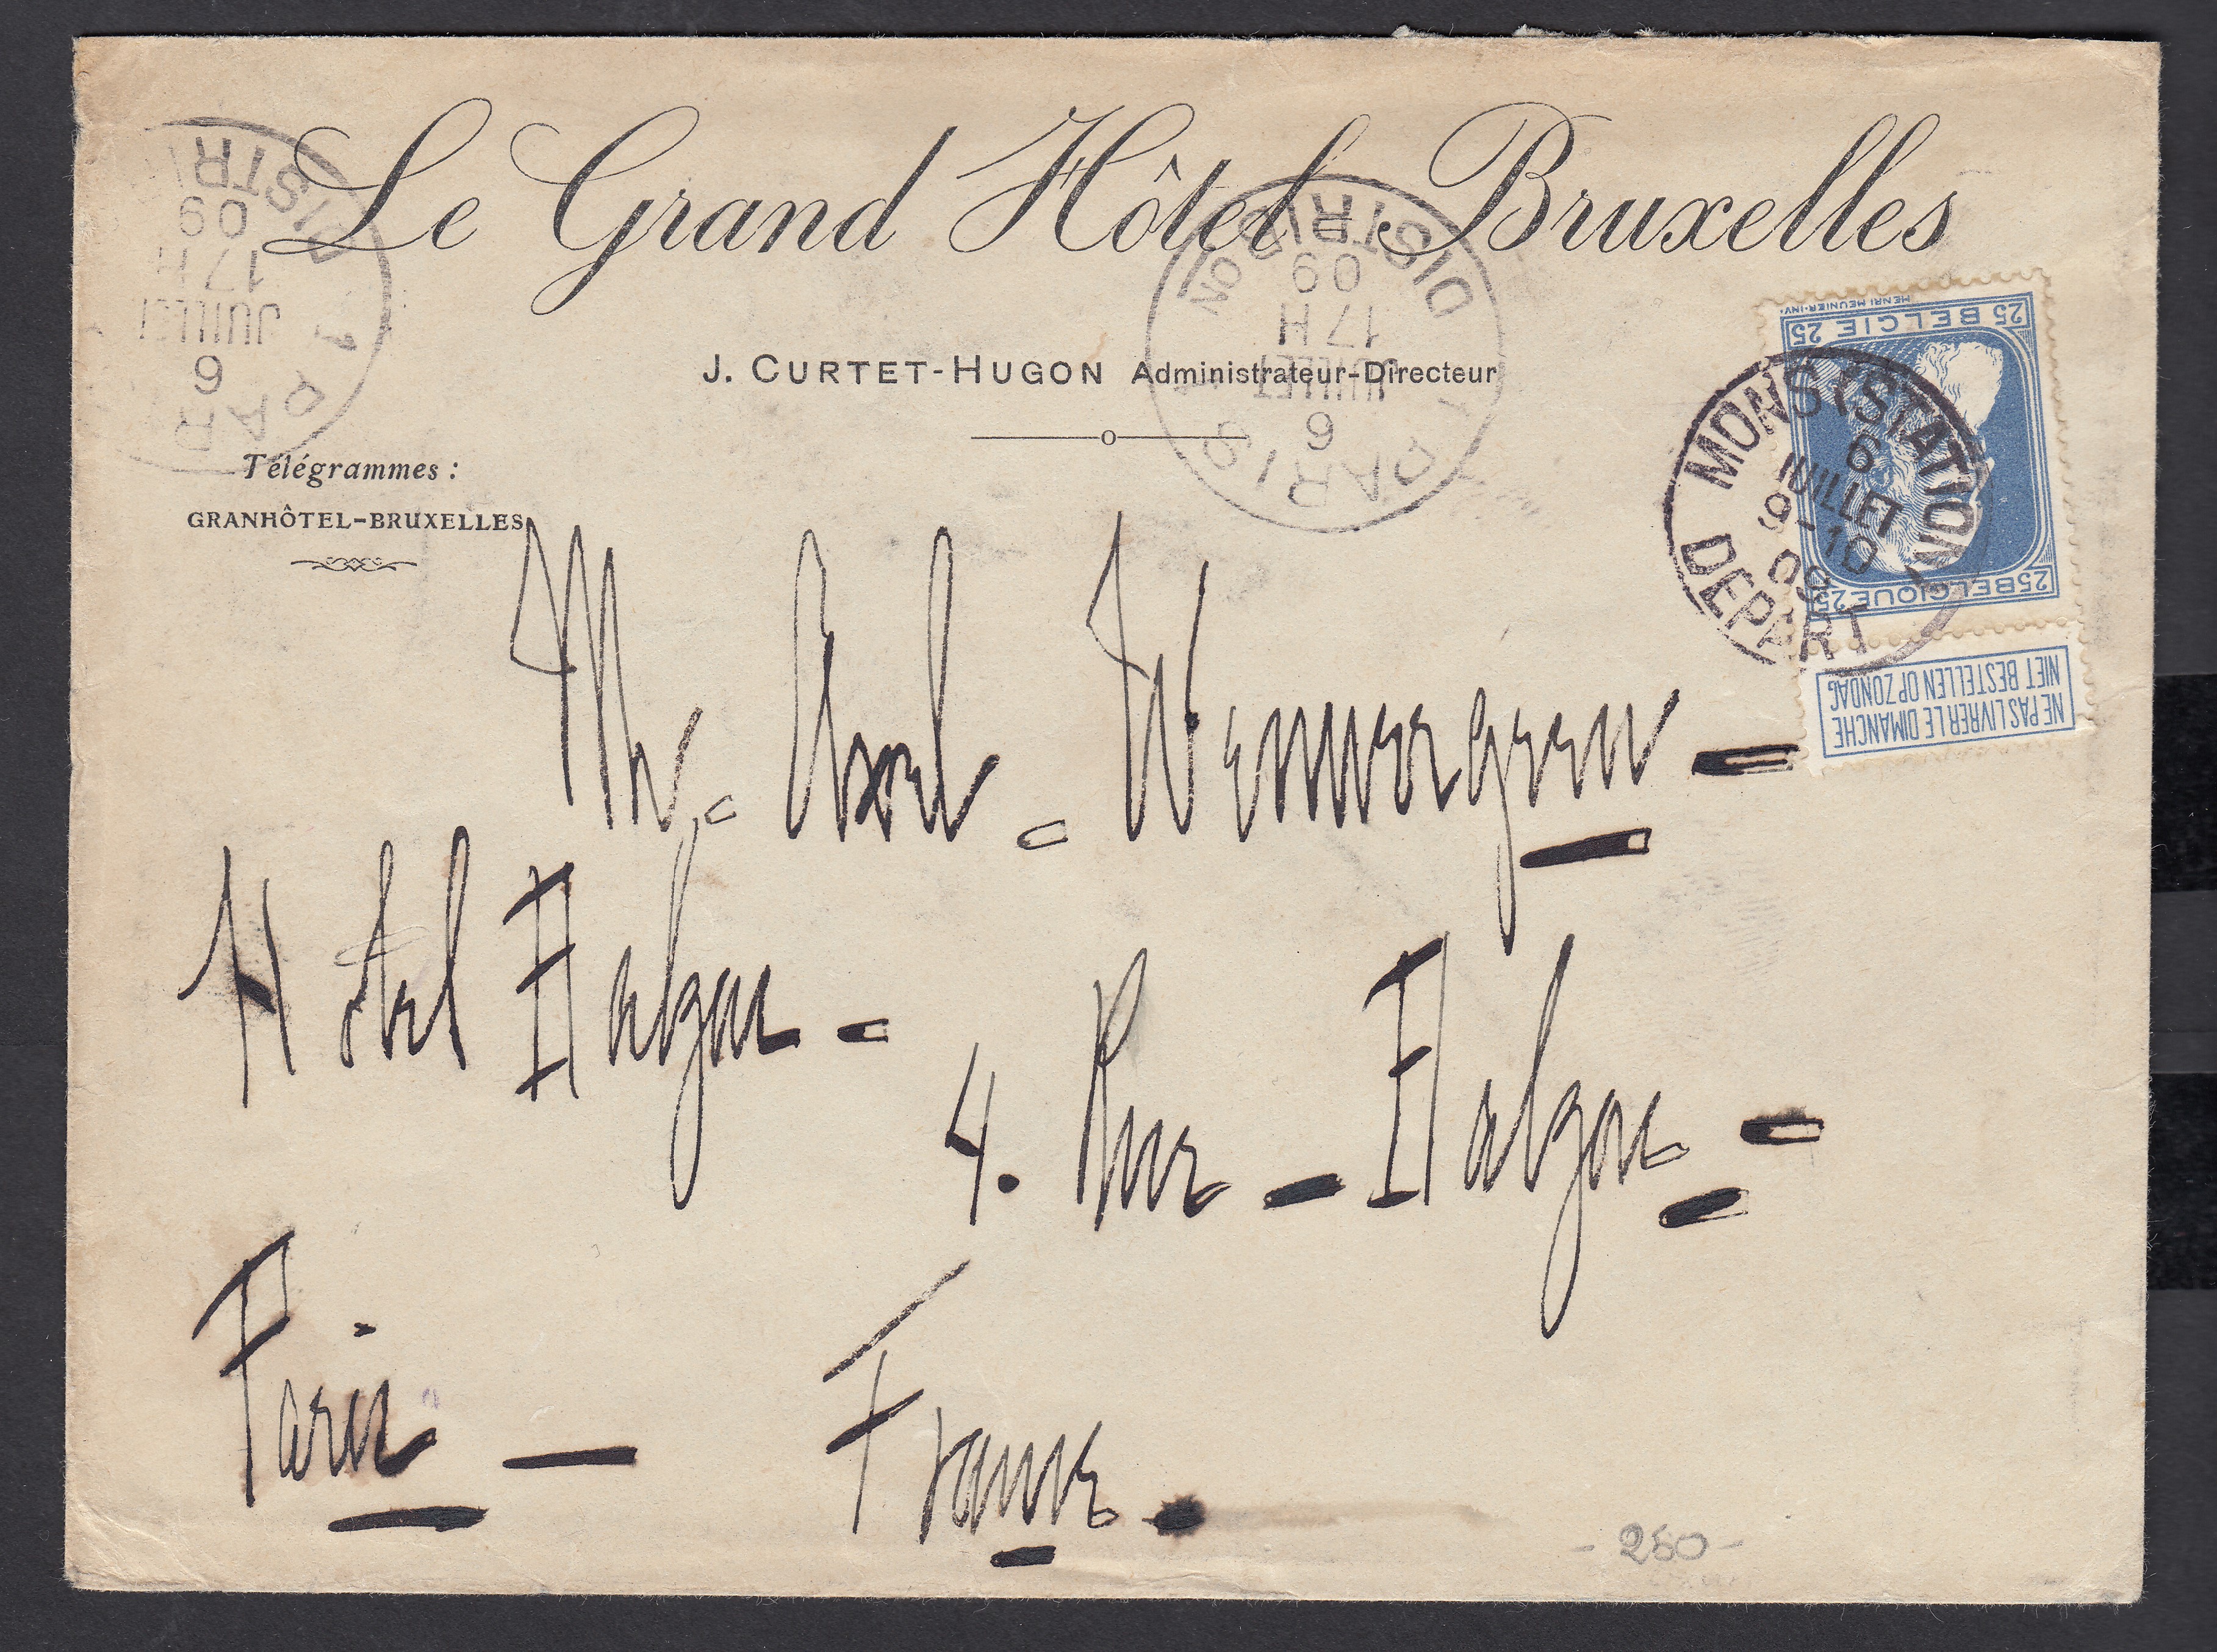 Le Grand Hôtel Bruxelles
J. CURTET-HUGON Administrateur-Directeur
Télégrammes :
GRANHÔTEL-BRUXELLES
PARIS DISTRIBUTION
6
JUILLET
17H
09
PARIS 1 DISTRION
6
JUILLET
17H
09
MONS (STATION)
6
JUILLET
9-10
09
DEPART
25 BELGIQUE 25
25 BELGIE 25
HENRI MEUNIER·INV.
NE PAS LIVRER LE DIMANCHE
NIET BESTELLEN OP ZONDAG
Mr. Axel Wennergren
Hotel Balzac
4. Rue Balzac
Paris — France.
- 250 -